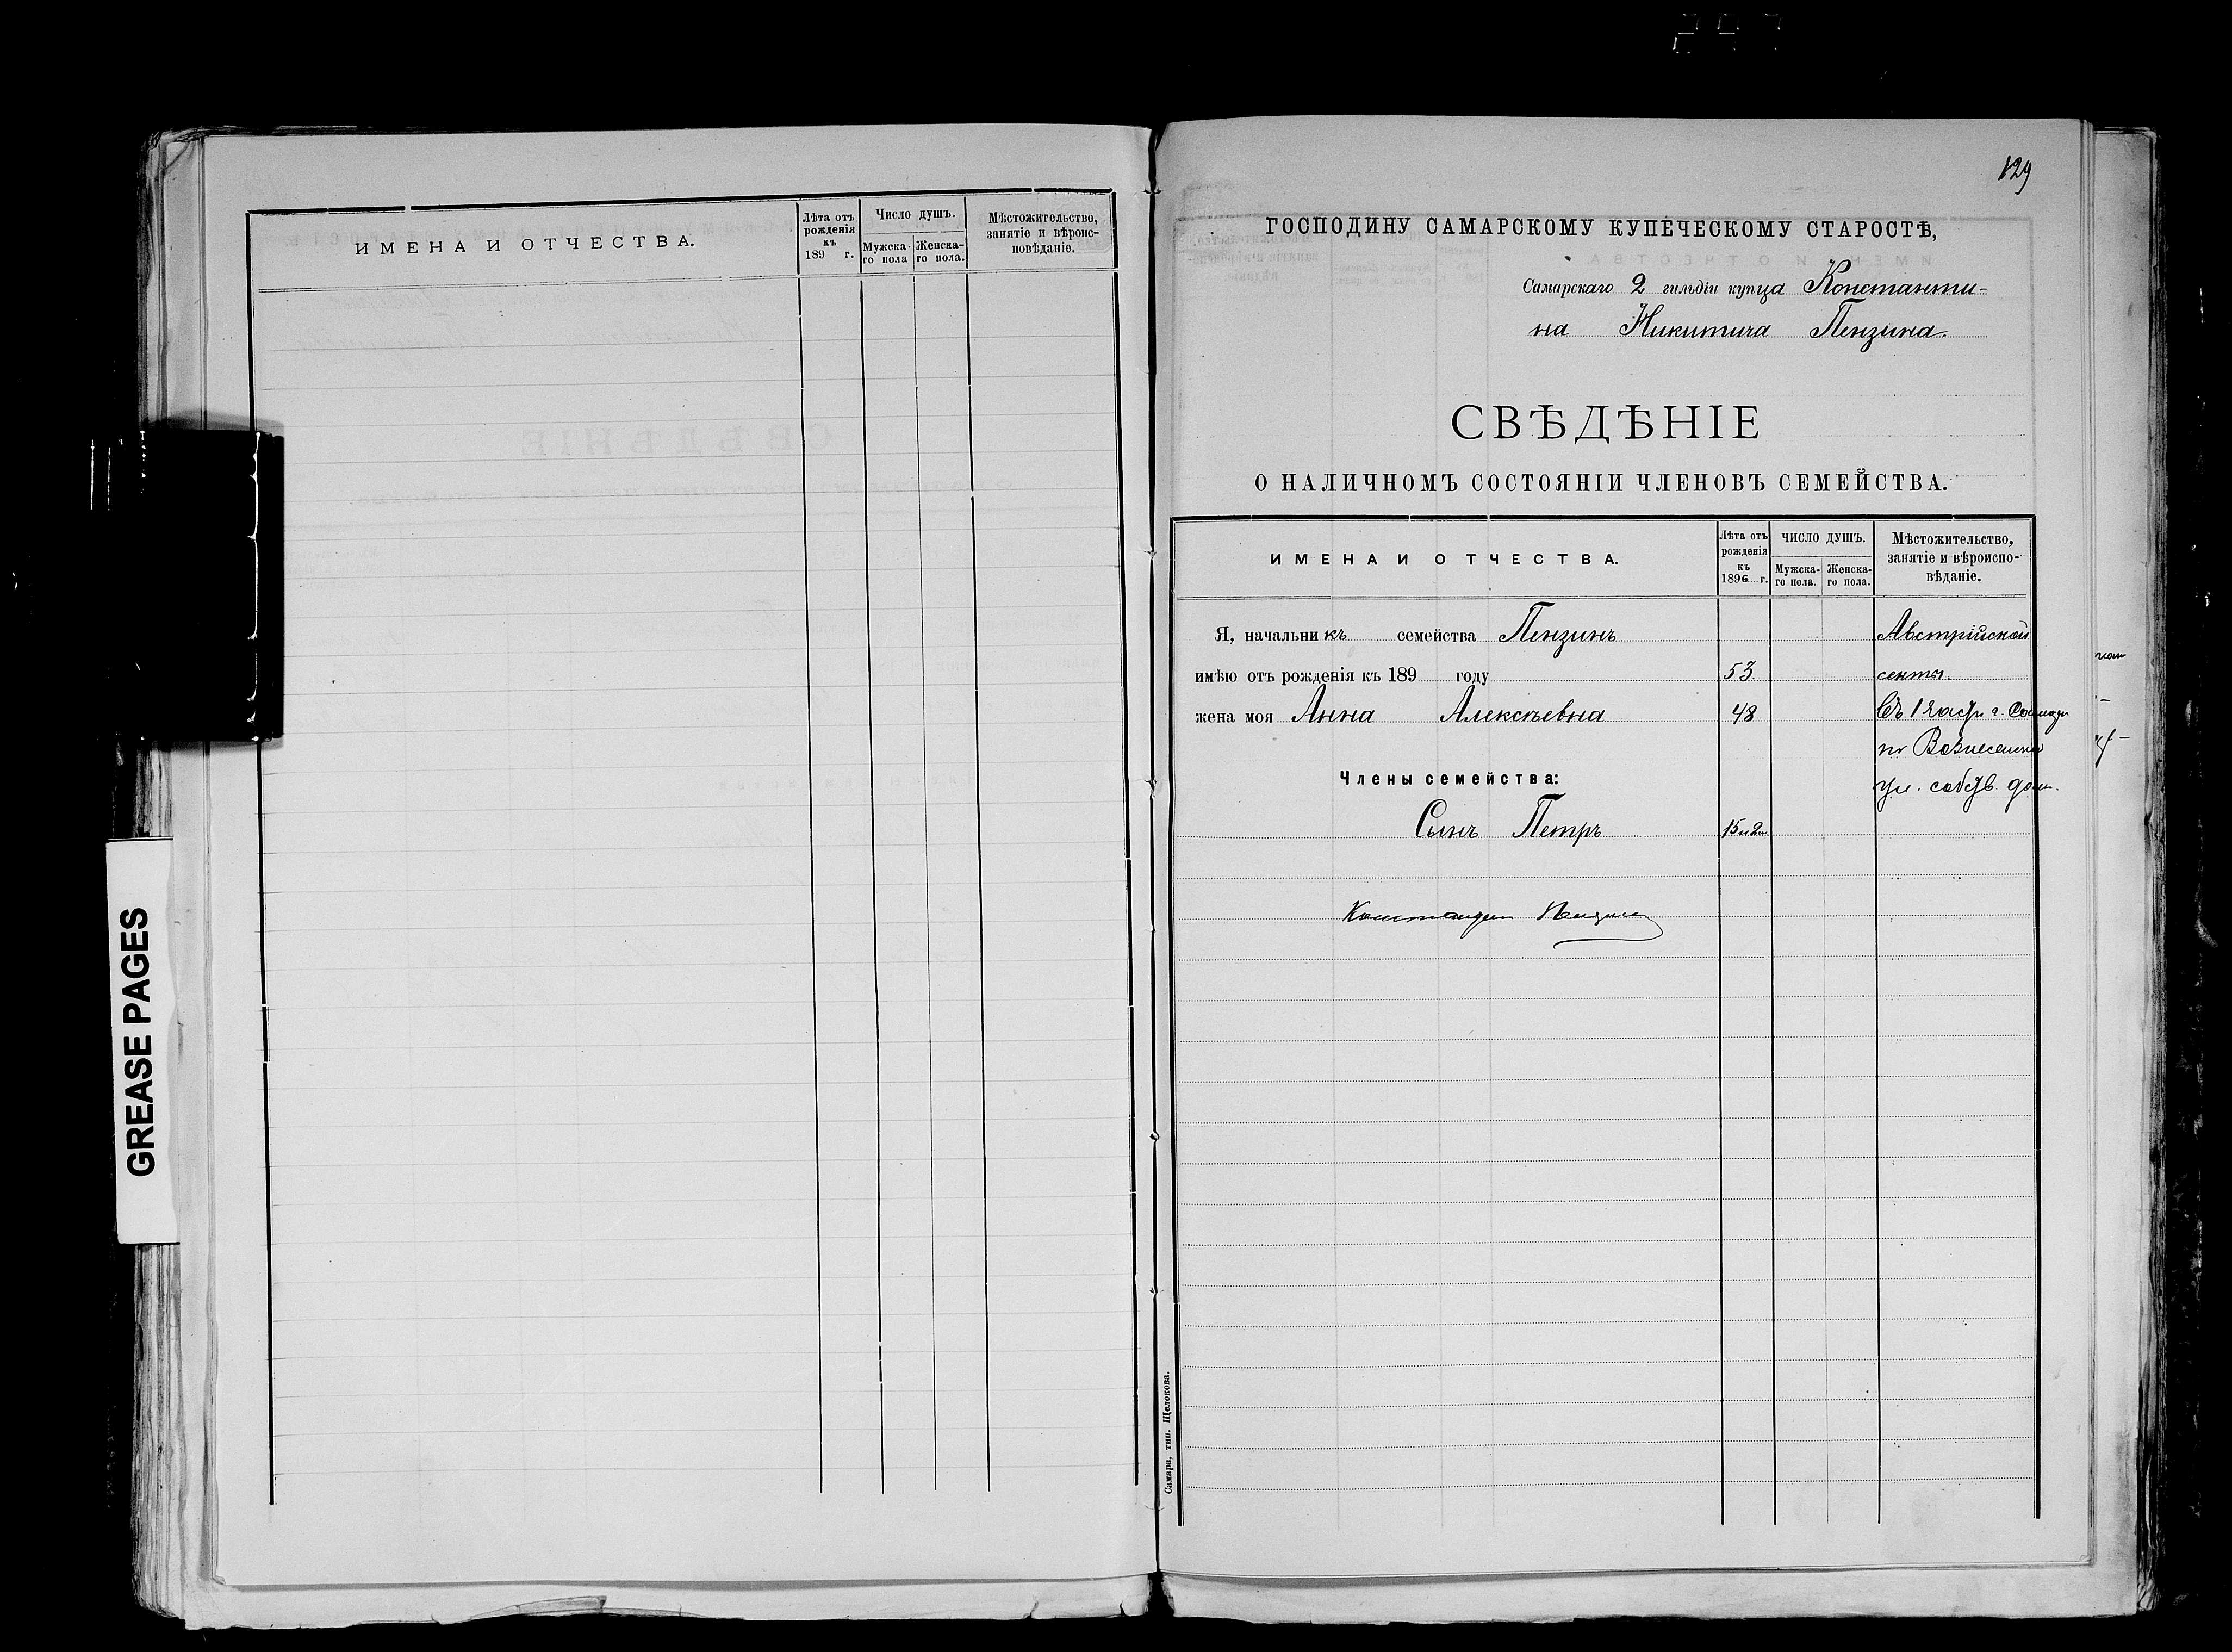 ИМЕНА И ОТЧЕСТВА.
Лѣта отъ рожденія къ 189 г.
Число душъ.
Мужска-го пола
Женска-го пола.
Мѣстожительство, занятіе и вѣроис-повѣданіе.
GREASE PAGES
129
ГОСПОДИНУ САМАРСКОМУ КУПЕЧЕСКОМУ СТАРОСТѢ,
Самарскаго 2 гильдіи купца Константи-
на Никитича Пензина.
СВѢДѢНІЕ
О НАЛИЧНОМЪ СОСТОЯНІИ ЧЛЕНОВЪ СЕМЕЙСТВА.
ИМЕНА И ОТЧЕСТВА.
Лѣта отъ рожденія къ 1896 г.
ЧИСЛО ДУШЪ.
Мужска-го пола.
Женска-го пола.
Мѣстожительство, занятіе и вѣроиспо-вѣданіе.
Я, начальникъ семейства Пензинъ Австрійской
имѣю отъ рожденія къ 189 году 53 секты.
жена моя Анна Алексѣевна 48 Въ 1 части г. Самары
по Вознесенской
Члены семейства:
ул. собств. дом.
Сынъ Петръ 15 и 2 м.
Константин Пензин
Самара, тип. Щелокова.